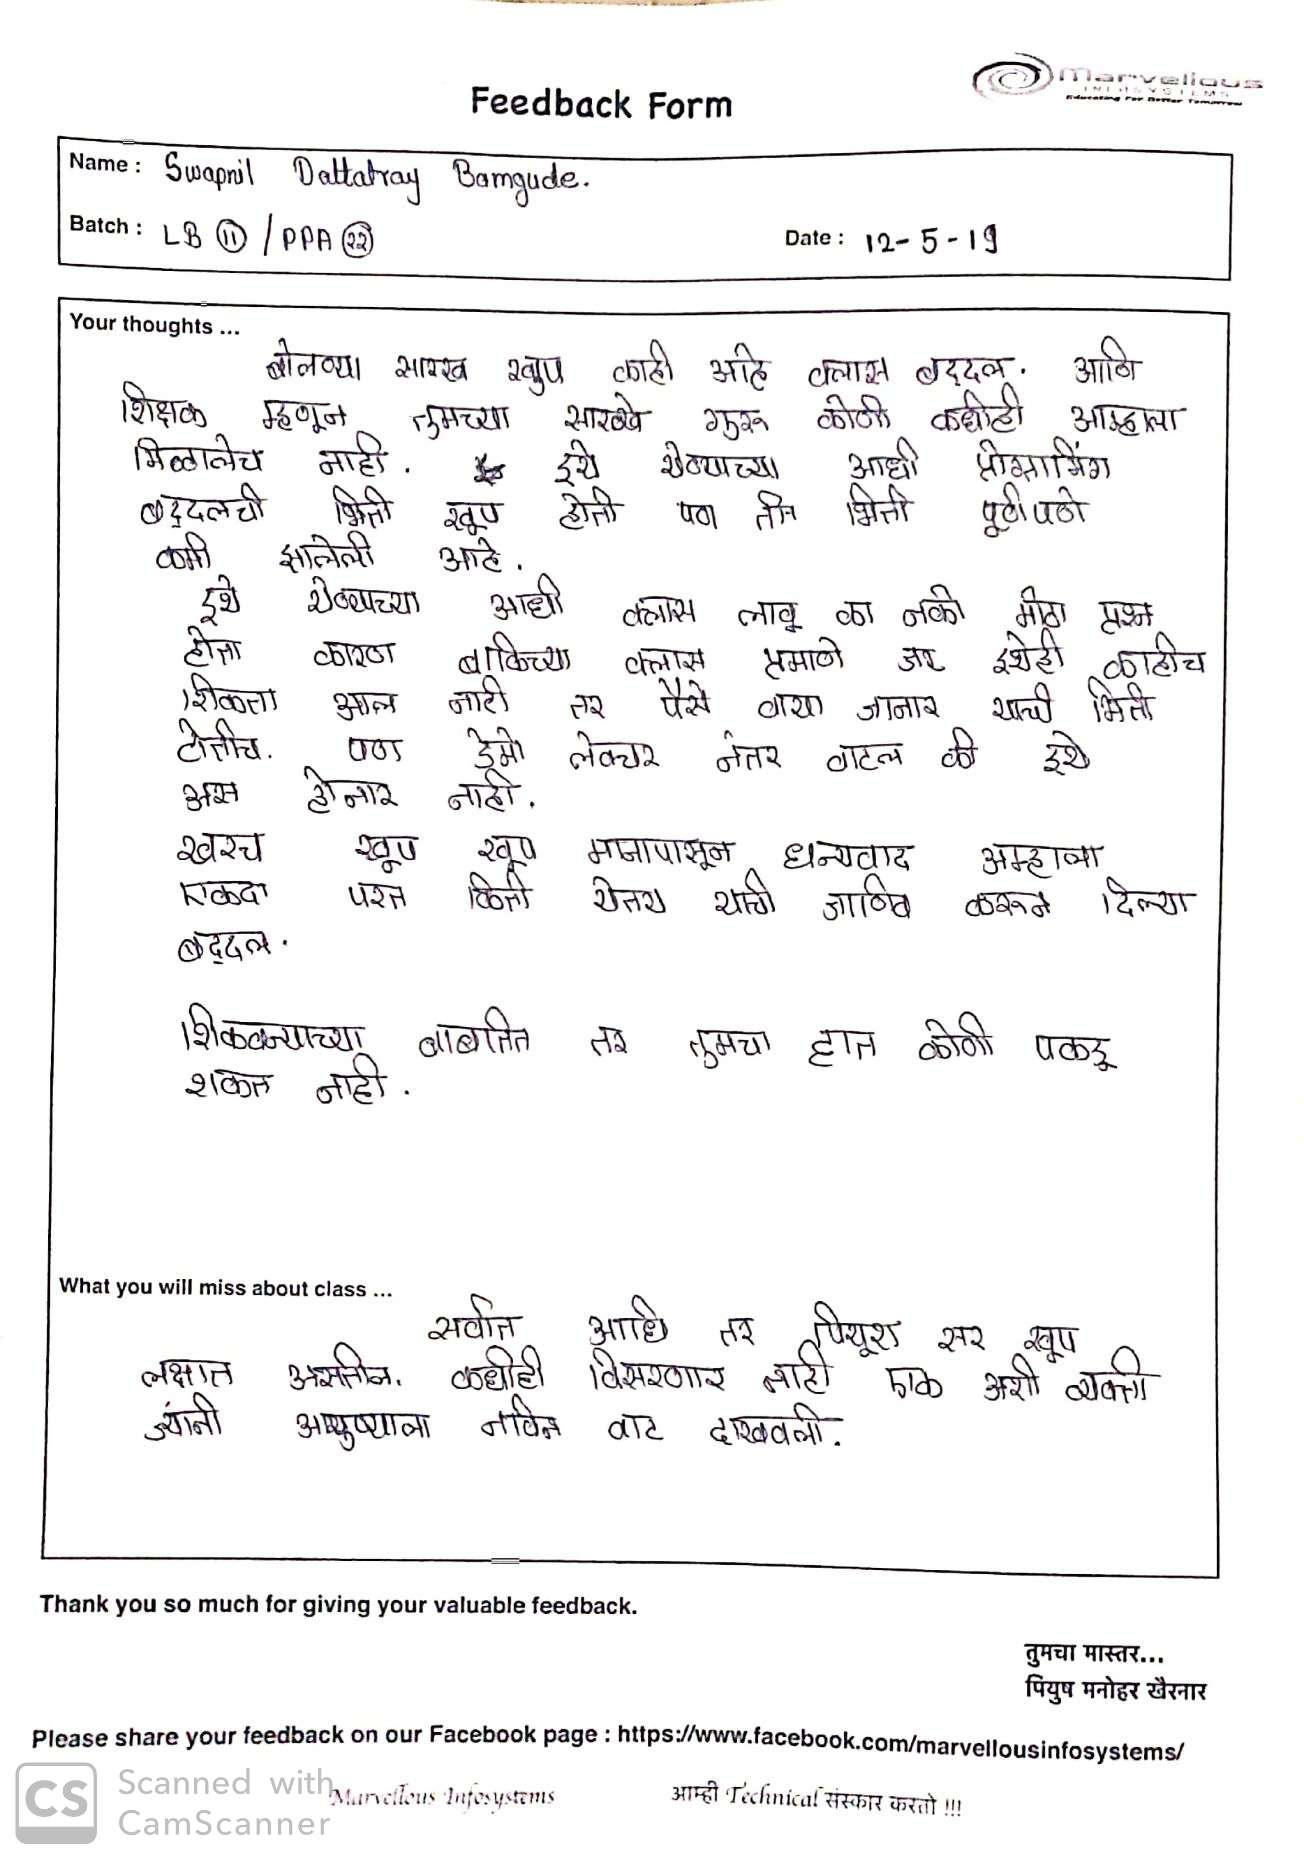 marvellous
INFOSYSTEMS
Educating For Better Tomorrow
Feedback Form
Name : Swapnil Dattatray Bamgude.
Batch : LB 11 / PPA 22
Date : 12-5-19
Your thoughts ...
बोलण्या सारख खुप काही आहे क्लास बद्दल. आणि
शिक्षक म्हणून तुमच्या सारखे गुरू कोणी कधीही आम्हाला
मिळालेच नाही. इथे येण्याच्या आधी प्रोग्रामिंग
बद्दलची भिती खूप होती पण तीन भिती पूर्णपणे
कमी झालेली आहे.
इथे येण्याच्या आधी क्लास लावू का नको मोठा प्रश्न
होता कारण बाकिच्या क्लास प्रमाणे जर इथेही काहीच
शिकता आल नाही तर पैसे वाया जानार याची भिती
होतीच. पण डेमो लेक्चर नंतर वाटल की इथे
अस होनार नाही.
खरच खूप खूप मनापासून धन्यवाद अम्हाला
एकदा परत किती येतय याची जाणिव करून दिल्या
बद्दल.
शिकवन्याच्या बाबतित तर तुमचा हात कोणी पकडू
शकत नाही.
What you will miss about class ...
सर्वात आधि तर पियूश सर खूप
लक्षात असतील. कधीही विसरणार नाही एक अशी व्यक्ती
ज्यांनी आयुष्याला नविन वाट दाखवली.
Thank you so much for giving your valuable feedback.
तुमचा मास्तर...
पियुष मनोहर खैरनार
Please share your feedback on our Facebook page : https://www.facebook.com/marvellousinfosystems/
Marvellous Infosystems आम्ही Technical संस्कार करतो !!!
CS Scanned with
CamScanner